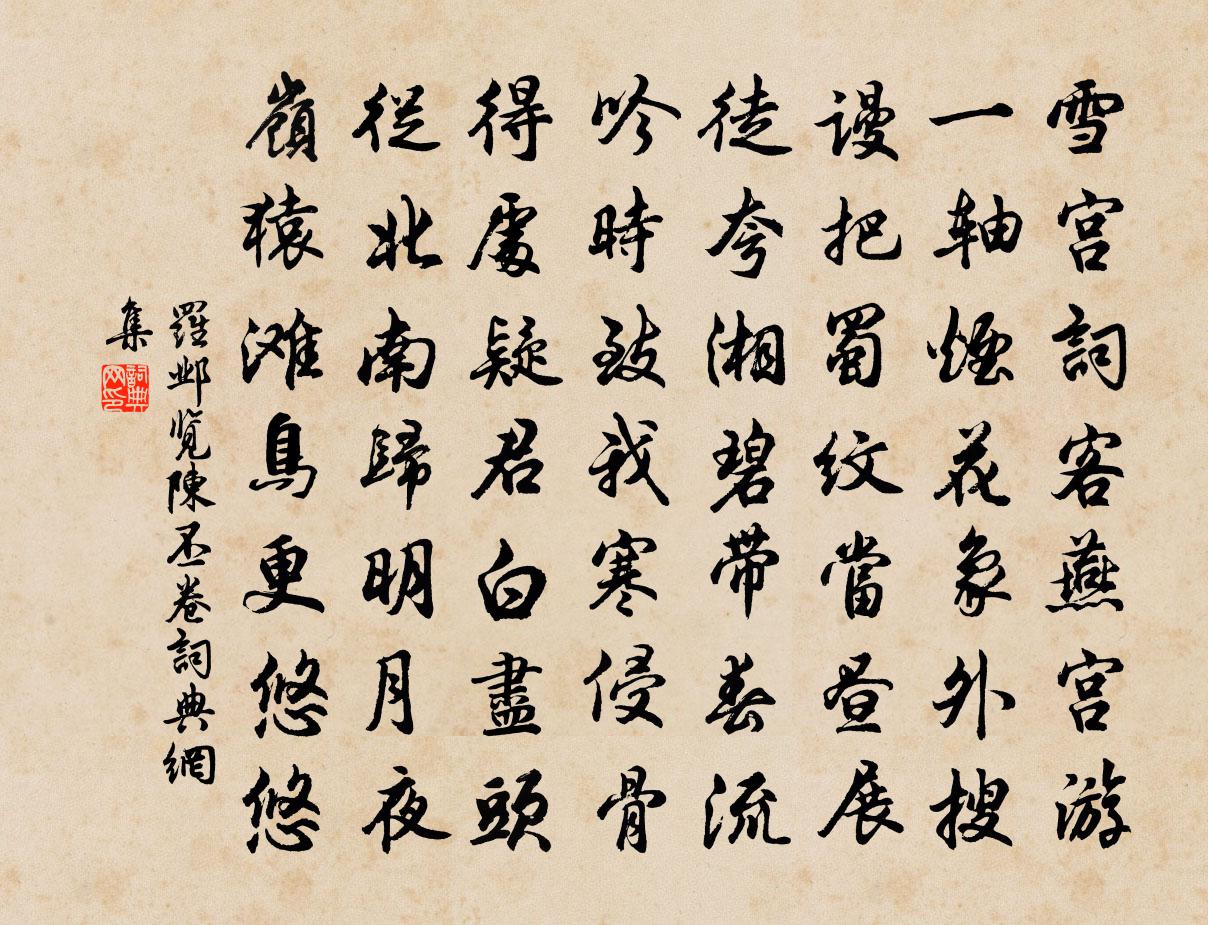 雪宫詞客燕宫游
一軸煙花象外搜
謾把蜀紋當昼展
徒夸湘碧帶春流
吟時致我寒侵骨
得處疑君白盡頭
從北南歸明月夜
嶺猿滩鳥更悠悠
羅邺覽陳丕卷詞典網
集
詞典网印